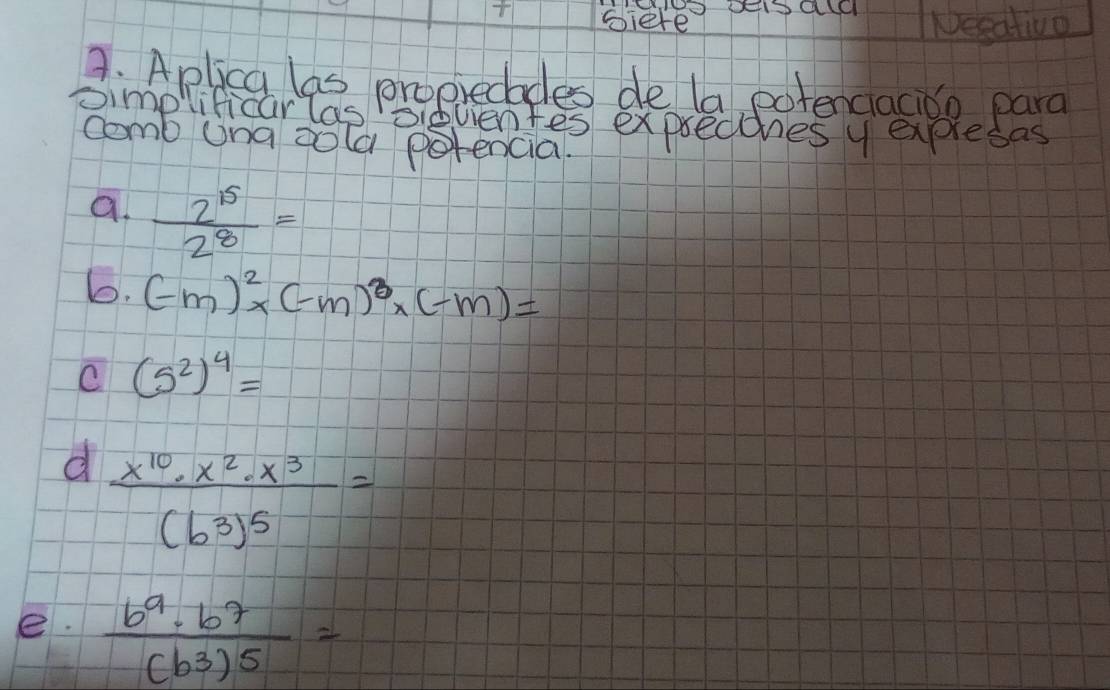 Siete Negativo
7. Aplica las propiedades de la potenciación para
simplificar las siguientes expreciones y expresas
como una sola potencia.
a. 2^15 / 2^8 =
b. (-m)^2 x (-m)^3 x (-m) =
c (5^2)^4 =
d x^10 . x^2 . x^3 / (b^3)^5 =
e. b^9 . b^7 / (b^3)^5 =